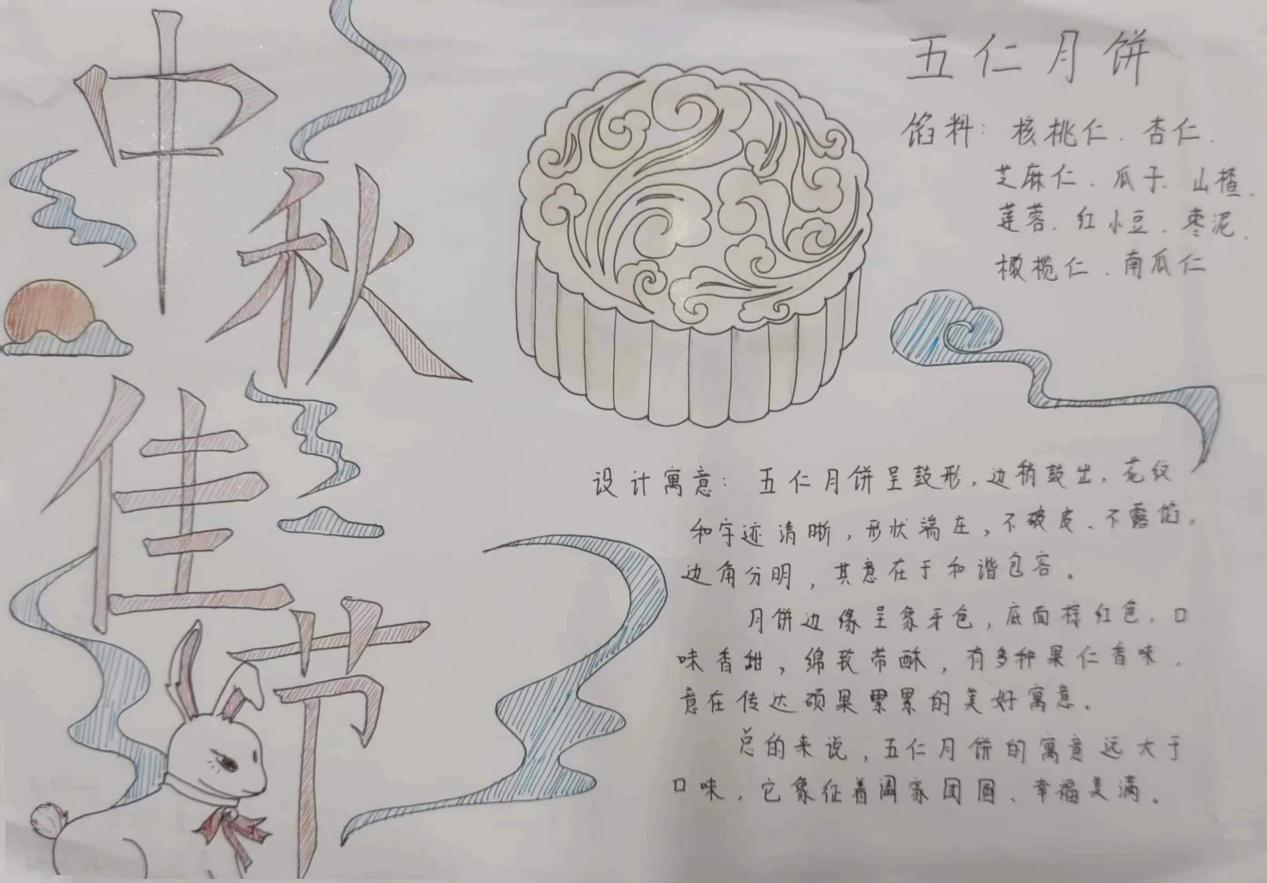 中秋佳节
五仁月饼
馅料：核桃仁、杏仁、
芝麻仁、瓜子、山楂、
莲蓉、红小豆、枣泥、
橄榄仁、南瓜仁
设计寓意：五仁月饼呈鼓形，边稍鼓出，花纹
和字迹清晰，形状端庄，不破皮、不露馅，
边角分明，其意在于和谐包容。
月饼边缘呈象牙色，底面棕红色，口
味香甜，绵软带酥，有多种果仁香味，
意在传达硕果累累的美好寓意。
总的来说，五仁月饼的寓意远大于
口味，它象征着阖家团圆、幸福美满。